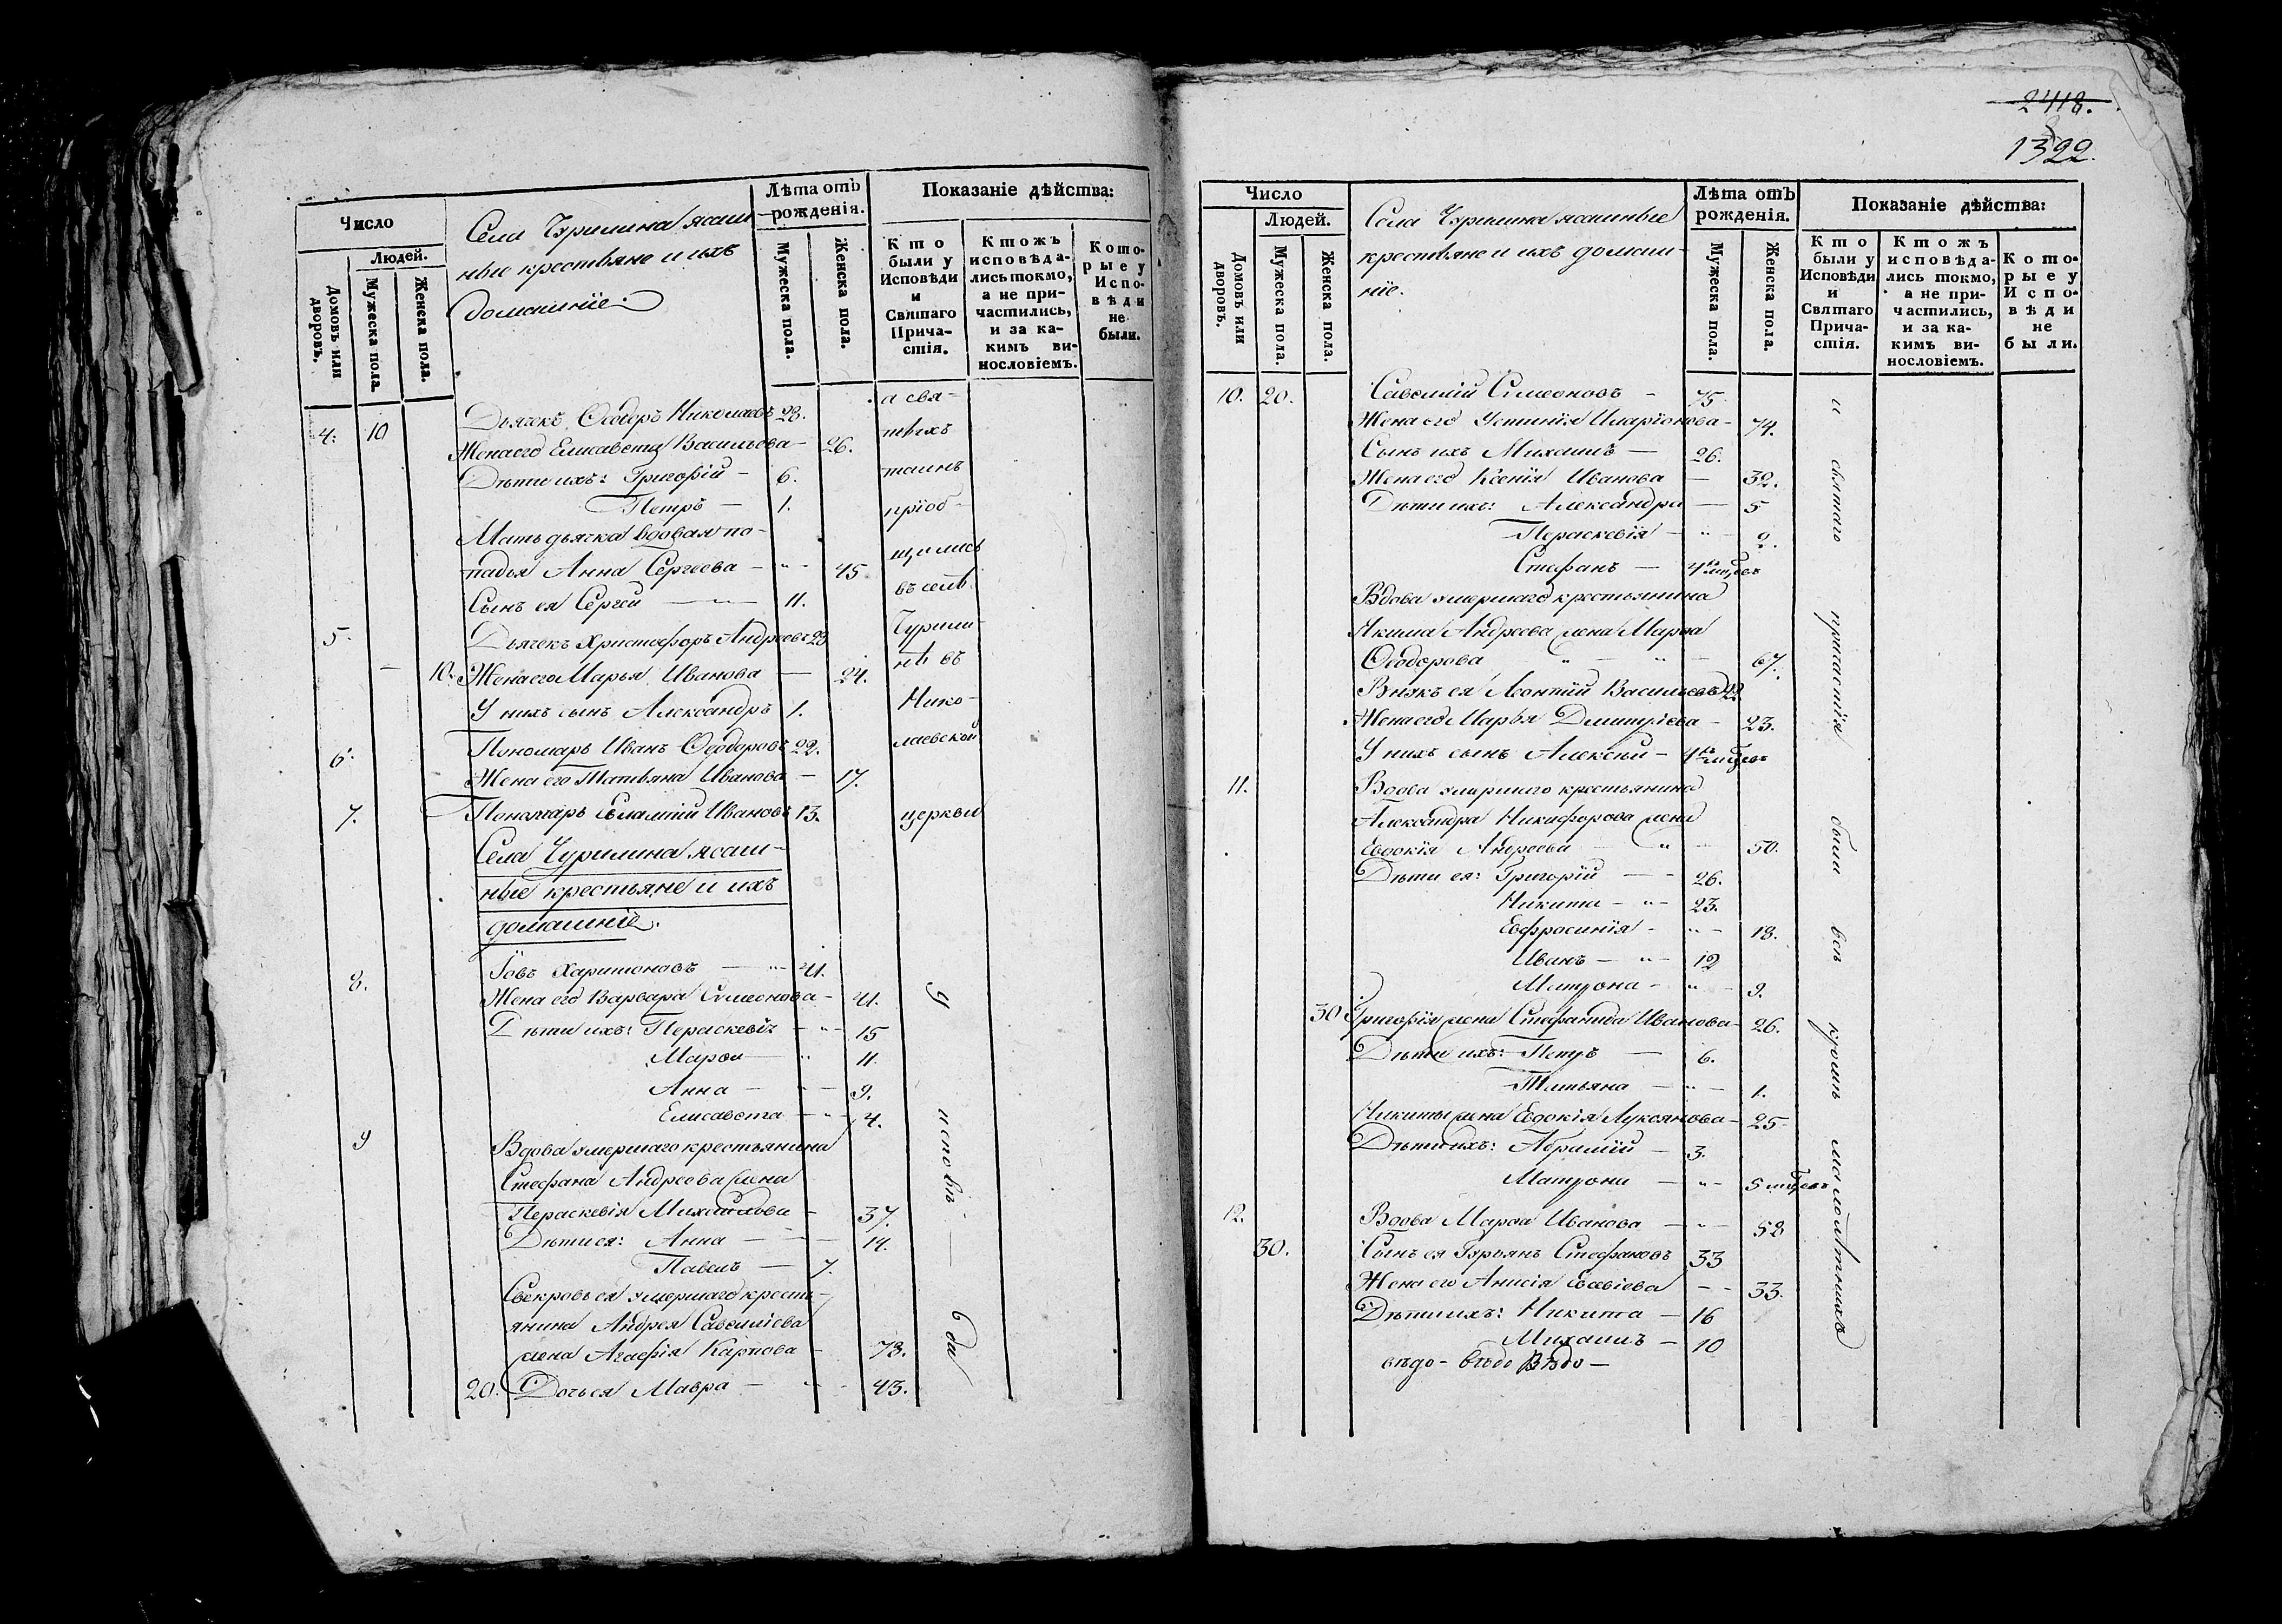 Число
Людей.
Домовъ или дворовъ.
Мужеска пола.
Женска пола.
Села Чурилина ясаш-
ные крестьяне и ихъ
домашніе.
Лѣта отъ рожденія.
Мужеска пола.
Женска пола.
Показаніе дѣйства:
Кто были у Исповѣди и Святаго Прича-стія.
Ктожъ исповѣда-лись токмо, а не при-частились, и за ка-кимъ ви-нословіемъ.
Кото-рые у Испо-вѣди не были.
4. 10 Дьячекъ Ѳеодоръ Николаевъ 28. а свя-
Жена его Елисавета Васильева – 26. тыхъ
Дѣти ихъ: Григорій – 6. таинъ
Петръ – 1. пріоб-
Мать дьячка вдовая по-
падья Анна Сергеева – 45 щились
Сынъ ея Сергей – 11. въ селѣ
5. Дьячекъ Христофоръ Андреевъ 23 Чурили-
10. Жена его Марья Иванова – 24. нѣ въ
У нихъ сынъ Александръ 1. Нико-
6. Пономарь Иванъ Ѳеодоровъ 22. лаевской
Жена его Татьяна Иванова – 17.
7. Пономарь Евлампій Ивановъ 13. церкви
Села Чурилина ясаш-
ные крестьяне и ихъ
домашніе.
8. Іовъ Харитоновъ – 41.
Жена его Варвара Симеонова – 41. у
Дѣти ихъ: Параскевія – 15
Марѳа – 11.
Анна – 9.
Елисавета – 4. исповѣ-
9 Вдова умершаго крестьянина
Стефана Андреева жена
Пераскевія Михайлова – 37.
Дѣти ея: Анна – 14.
Павелъ – 7.
Свекровь ея умершаго кресть-
янина Андрея Савелиева
жена Агафія Карпова – 78.
20. Дочь ея Мавра – 43.
2418.
1322.
Число
Людей.
Домовъ или дворовъ.
Мужеска пола.
Женска пола.
Села Чурилина ясашные
крестьяне и ихъ домаш-
ніе.
Лѣта отъ рожденія.
Мужеска пола.
Женска пола.
Показаніе дѣйства:
Кто были у Исповѣди и Святаго Прича-стія.
Ктожъ исповѣда-лись токмо, а не при-частились, и за ка-кимъ ви-нословіемъ.
Кото-рые у Испо-вѣди не были.
10. 20. Савелій Симеоновъ – 75
Жена его Устинія Иларіонова – 74.
Сынъ ихъ Михаилъ – 26.
Жена его Ксенія Иванова – 32.
Дѣти ихъ: Александра – 5
Пераскевія – 2.
Стефанъ – 4
Вдова умершаго крестьянина
Якима Андреева жена Марѳа
Ѳеодорова – 67.
Внукъ ея Леонтій Васильевъ 22
Жена его Марья Дмитріева – 23.
У нихъ сынъ Алексѣй – 4
11. Вдова умершаго крестьянина
Александра Никифорова жена
Евдокія Андреева – 50.
Дѣти ея: Григорій – 26.
Никита – 23.
Евфросинія – 18.
Иванъ – 12
Матрона – 9.
30 Григорія жена Стефанида Иванова – 26.
Дѣти ихъ: Петръ – 6.
Татьяна – 1.
Никиты жена Евдокія Лукоянова – 25
Дѣти ихъ: Абрамій – 3.
Матрона – 5
12. Вдова Марѳа Иванова – 58
30. Сынъ ея Гурьянъ Стефановъ 33
Жена его Анисія Евсевіева – 33.
Дѣти ихъ: Никита – 16
Михаилъ – 10
и святаго причастія были всѣ кромѣ малолѣтныхъ